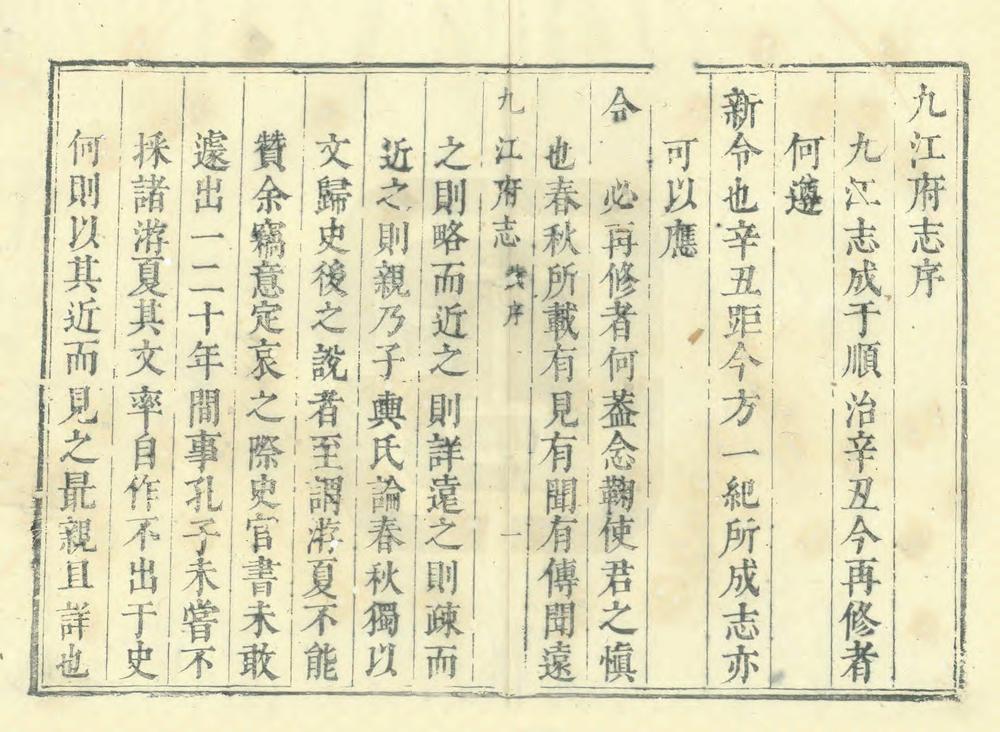 九江府志序
九江志成于順治辛丑今再修者
何遵
新令也辛丑距今方一紀所成志亦
可以應
令必再修者何葢念鞠使君之愼
也春秋所載有見有聞有傳聞遠
九江府志 序 一
之則略而近之則詳遠之則疎而
近之則親乃子輿氏論春秋獨以
文歸史後之說者至謂游夏不能
贊余竊意定哀之際史官書未敢
遽出一二十年間事孔子未嘗不
採諸游夏其文率自作不出于史
何則以其近而見之最親且詳也